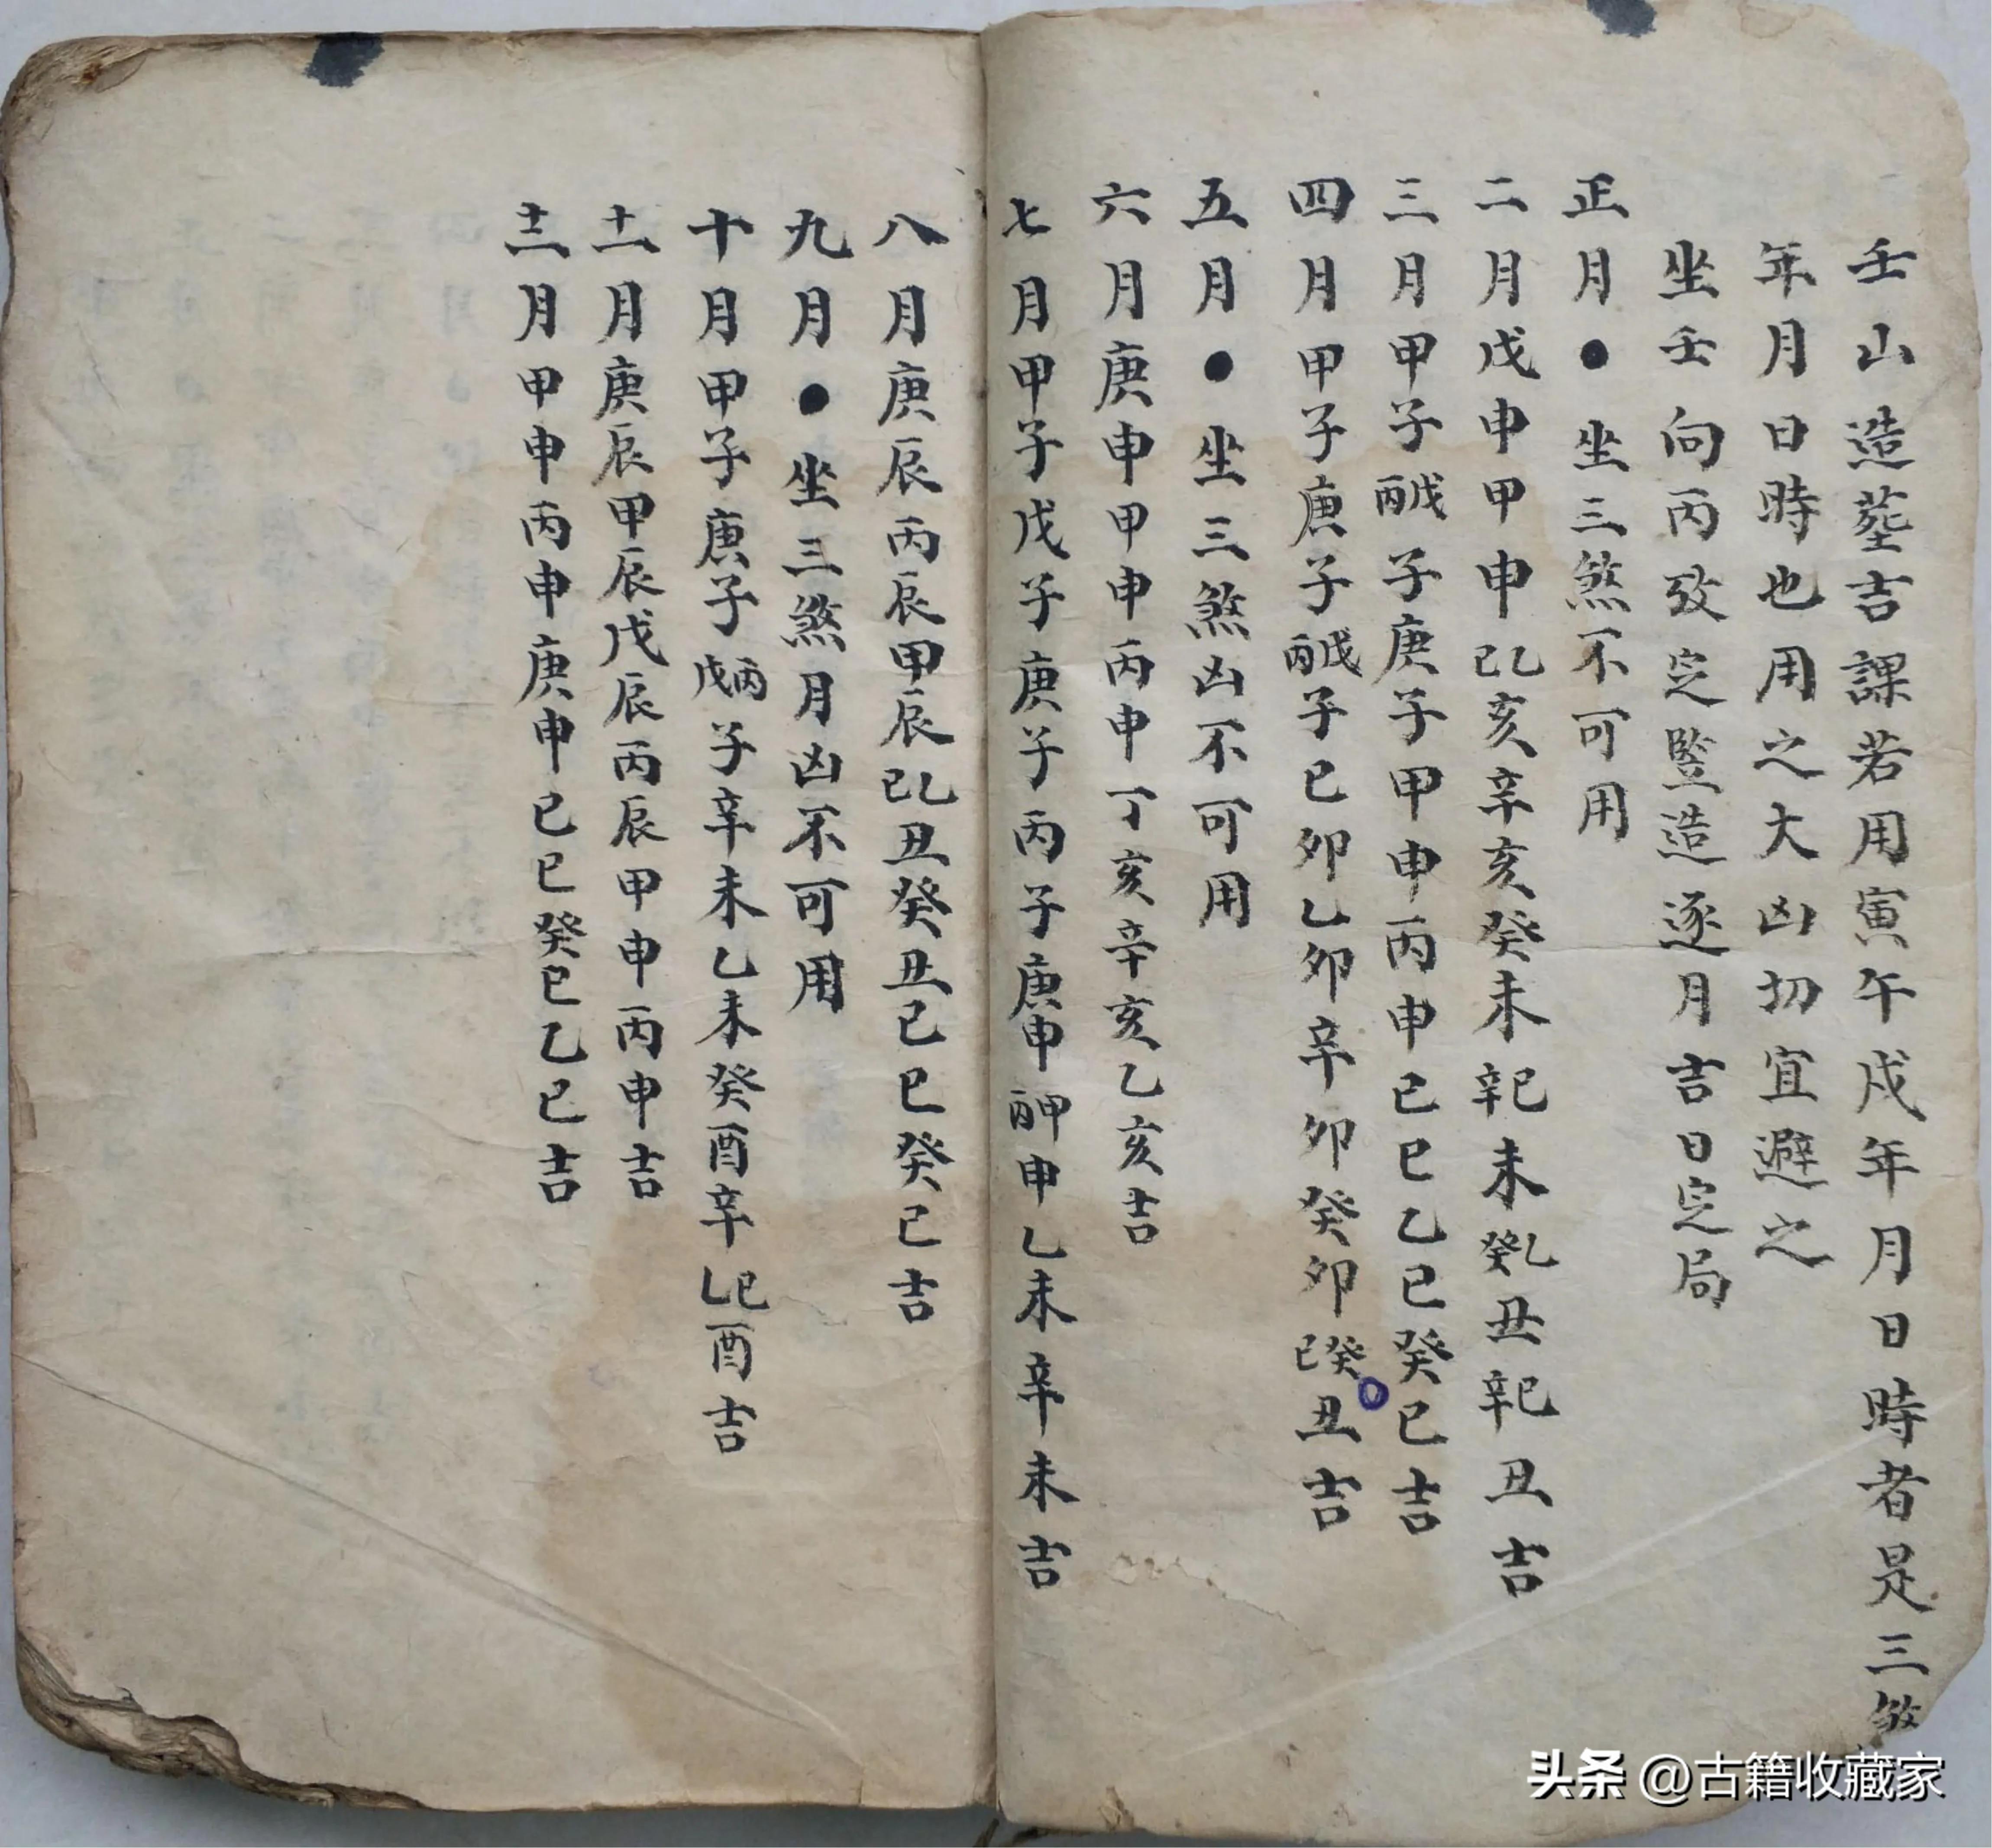 壬山造塟吉課若用寅午戌年月日時者是三煞
年月日時也用之大凶切宜避之
坐壬向丙攷定豎造逐月吉日定局
正月●坐三煞不可用
二月戊申甲申己乙亥辛亥癸未辛己未癸乙丑辛己丑吉
三月甲子丙戊子庚子甲申丙申己巳乙巳癸巳吉
四月甲子庚子丙戊子己卯乙卯辛卯癸卯己癸丑吉
五月●坐三煞凶不可用
六月庚申甲申丙申丁亥辛亥乙亥吉
七月甲子戊子庚子丙子庚申丙甲申乙未辛未吉
八月庚辰丙辰甲辰己乙丑癸丑己巳癸巳吉
九月●坐三煞月凶不可用
十月甲子庚子戊丙子辛未乙未癸酉辛乙己酉吉
十一月庚辰甲辰戊辰丙辰甲申丙申吉
十二月甲申丙申庚申己巳癸巳乙巳吉
头条 @古籍收藏家